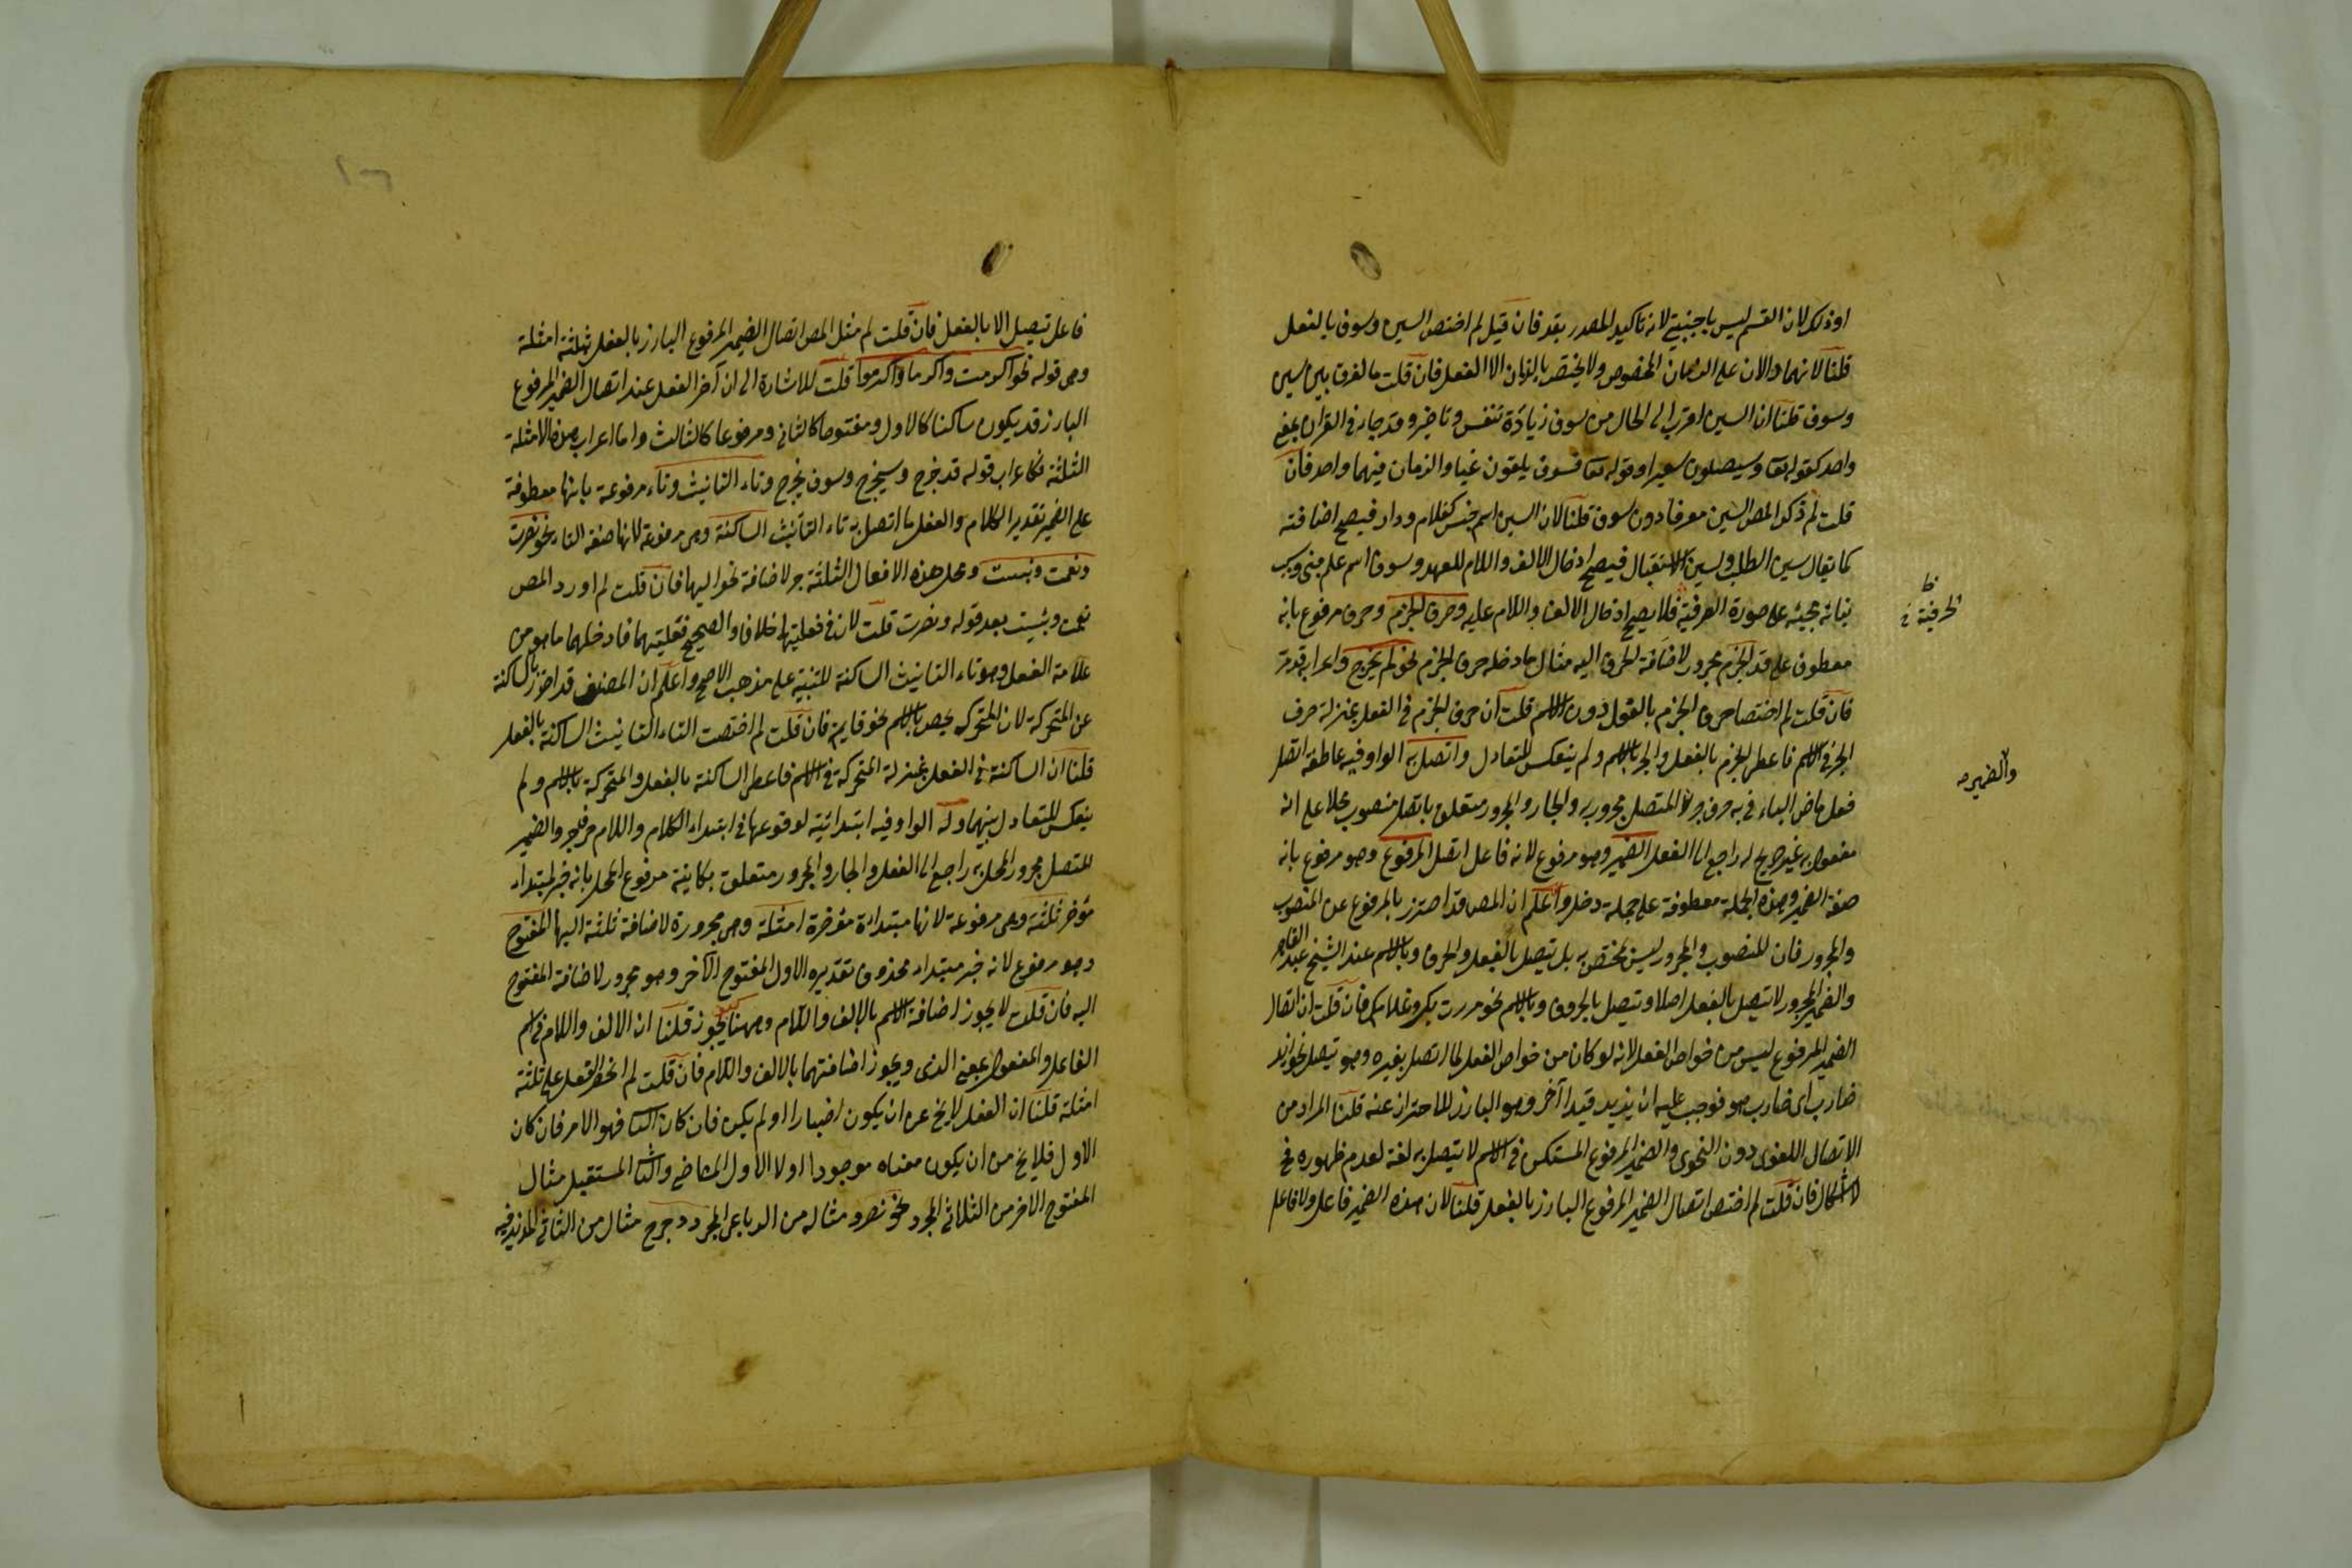 او ذلك لان القسم ليس باجنبية لانه تاكيد المصدر بقد فان قيل لم اختص السين وسوف بالفعل
قلنا لانهما دالان على الزمان المخصوص ولا يختص بالزمان الا الفعل فان قلت ما الفرق بين سين
وسوف قلنا ان السين اقرب الى الحال من سوف زيادة تنفس وتاخير وقد جاء في القرآن بمعنى
واحد كقوله تعا وسيصلون سعيرا وقوله تعا فسوف يلقون غيا والزمان فيهما واحد فان
قلت لم ذكر المص السين معرفا دون سوف قلنا لان السين اسم جنس كغلام ودار فيصح اضافته
كما يقال سين الطلب وسين الاستقبال فيصح ادخال الالف واللام للعهد وسوف اسم علم مبنى وسبب
بنائه مجيئه على صورة الحرفية فلا يصح ادخال الالف واللام عليه وحرف الجزم وحرف مرفوع بانه
معطوف على قد الجزم مجرور لاضافة الحرف اليه مثال ما دخله حرف الجزم نحو لم يخرج واعرابه قد مر
فان قلت لم اختصا حرف الجزم بالفعل دون الاسم قلت ان حرف الجزم في الفعل بمنزلة حرف
الجر في الاسم فاعطى الجزم بالفعل والجر بالاسم ولم ينعكس للتعادل واتصل به الواو فيه عاطفة اتصل
فعل ماض الباء في به حرف جر المتصل مجرور به والجار والمجرور متعلق باتصل منصوب محلا على انه
مفعول به غير صريح له راجع الى الفعل الضمير وهو مرفوع لانه فاعل اتصل المرفوع وهو مرفوع بانه
صفة الضمير وهذه الجملة معطوفة على جملة دخل واعلم ان المص قد احترز بالمرفوع عن المنصوب
والمجرور فان المنصوب والمجرور ليس بمختص به بل يتصل بالفعل والحرف وبالاسم عند الشيخ عبد القاهر
والضمير المجرور لا تتصل بالفعل اصلا ويتصل بالحروف وبالاسم نحو مررت بك وغلامك فان قلت ان اتصال
الضمير المرفوع ليس من خواص الفعل لانه لو كان من خواص الفعل لما اتصل بغيره وهو يتصل نحو زيد
ضارب اى ضارب هو فوجب عليه ان يزيد قيدا آخر وهو البارز للاحتراز عنه قلنا المراد من
الاتصال اللغوى دون النحوى والضمير المرفوع المستكن في الاسم لا يتصل به لغة لعدم ظهوره في
الاشكال فان قلت لم اختص اتصال الضمير المرفوع البارز بالفعل قلنا لان هذه الضمير فاعل ولا فاعل
الحرفية
والضمير
فاعل يتصل الا بالفعل فان قلت لم مثل المص اتصال الضمير المرفوع البارز بالفعل بثلثة امثلة
وهى قوله نحو اكرمت واكرما واكرموا قلت للاشارة الى ان آخر الفعل عند اتصال الضمير المرفوع
البارز قد يكون ساكنا كالاول ومفتوحا كالثانى ومرفوعا كالثالث واما اعراب هذه الامثلة
الثلثة فكاعراب قوله قد خرج وسيخرج وسوف يخرج وتاء التانيث وتاء مرفوعة بانها معطوفة
على الضمير تقدير الكلام والفعل ما اتصل به تاء التانيث الساكنة وهى مرفوعة لانها صفة التاء نحو نصرت
ونعمت وبئست ومحل هذه الافعال الثلثة جر لاضافة نحو اليها فان قلت لم اورد المص
نعمت وبئست بعد قوله ونصرت قلت لان في فعليتهما خلافا والصحيح فعليتهما فادخلهما ما هو من
علامة الفعل وهو تاء التانيث الساكنة للتنبيه على مذهب الاصح واعلم ان المصنف قد احترز بالساكنة
عن المتحركة لان المتحركة يخص بالاسم نحو قايمة فان قلت لم اختصت التاء التانيث الساكنة بالفعل
قلنا ان الساكنة في الفعل بمنزلة المتحركة في الاسم فاعطى الساكنة بالفعل والمتحركة بالاسم ولم
ينعكس للتعادل بينهما وله الواو فيه ابتدائية لوقوعها في ابتداء الكلام واللام حرف جر والضمير
المتصل مجرور المحل به راجع الى الفعل والجار والمجرور متعلق بكاينة مرفوع المحل بانه خبر المبتداء
مؤخر ثلثة وهى مرفوعة لانها مبتداة مؤخرة امثلة وهى مجرورة لاضافة ثلثة اليها المفتوح
وهو مرفوع لانه خبر مبتداء محذوف تقديره الاول المفتوح الآخر وهو مجرور لاضافة المفتوح
اليه فان قلت لا يجوز اضافة الاسم بالالف واللام وههنا يجوز قلنا ان الالف واللام في اسم
الفاعل والمفعول بمعنى الذى ويجوز اضافتهما بالالف واللام فان قلت لم انحصر الفعل على ثلثة
امثلة قلنا ان الفعل لا يخ عن ان يكون اخبارا او لم يكن فان كان الثا فهو الامر فان كان
الاول فلا يخ من ان يكون معناه موجودا اولا الاول الماضى والثا المستقبل مثال
المفتوح الاخر من الثلاثى المجرد نحو نصر ومثاله من الرباعى المجرد دحرج مثال من الثلاثى المزيد فيه